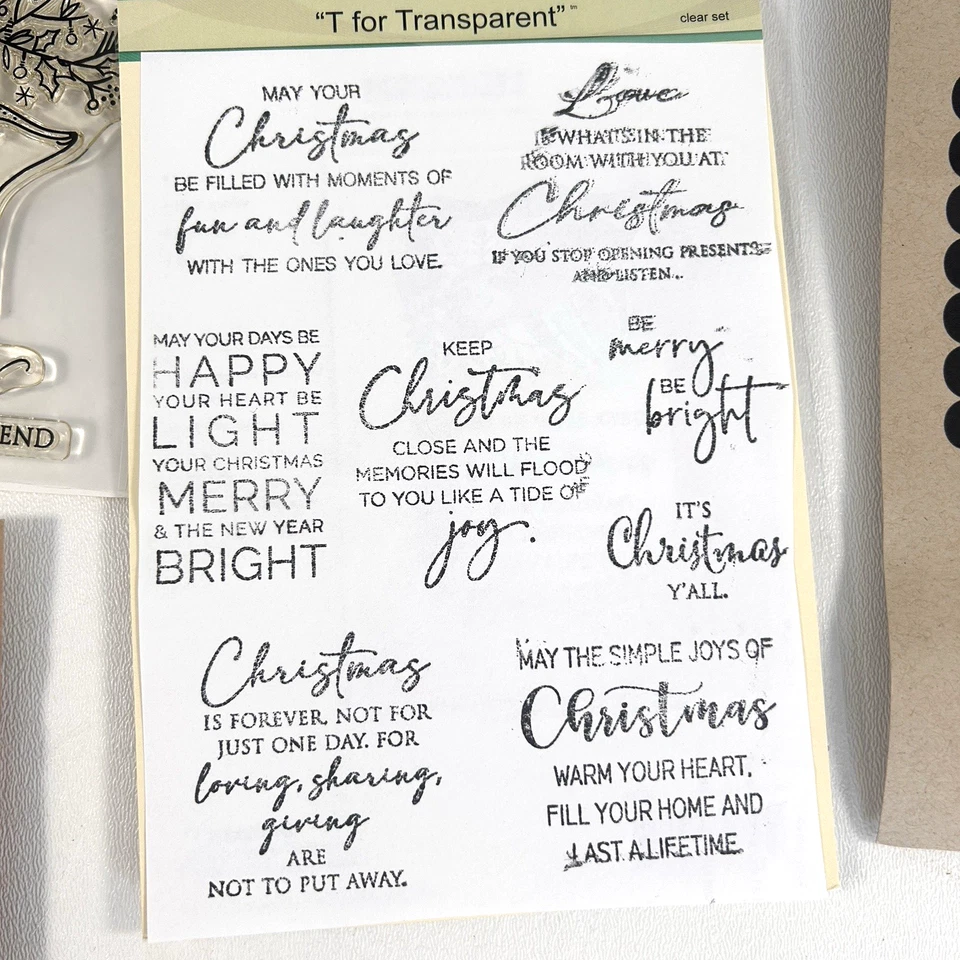 "T for Transparent" ™
clear set
END
MAY YOUR
Christmas
BE FILLED WITH MOMENTS OF
fun and laughter
WITH THE ONES YOU LOVE.
Love
IS WHAT'S IN THE
ROOM WITH YOU AT
Christmas
IF YOU STOP OPENING PRESENTS
AND LISTEN...
MAY YOUR DAYS BE
HAPPY
YOUR HEART BE
LIGHT
YOUR CHRISTMAS
MERRY
& THE NEW YEAR
BRIGHT
KEEP
Christmas
CLOSE AND THE
MEMORIES WILL FLOOD
TO YOU LIKE A TIDE OF
joy.
BE
merry
BE
bright
IT'S
Christmas
Y'ALL.
Christmas
IS FOREVER, NOT FOR
JUST ONE DAY. FOR
loving, sharing,
giving
ARE
NOT TO PUT AWAY.
MAY THE SIMPLE JOYS OF
Christmas
WARM YOUR HEART,
FILL YOUR HOME AND
LAST A LIFETIME.